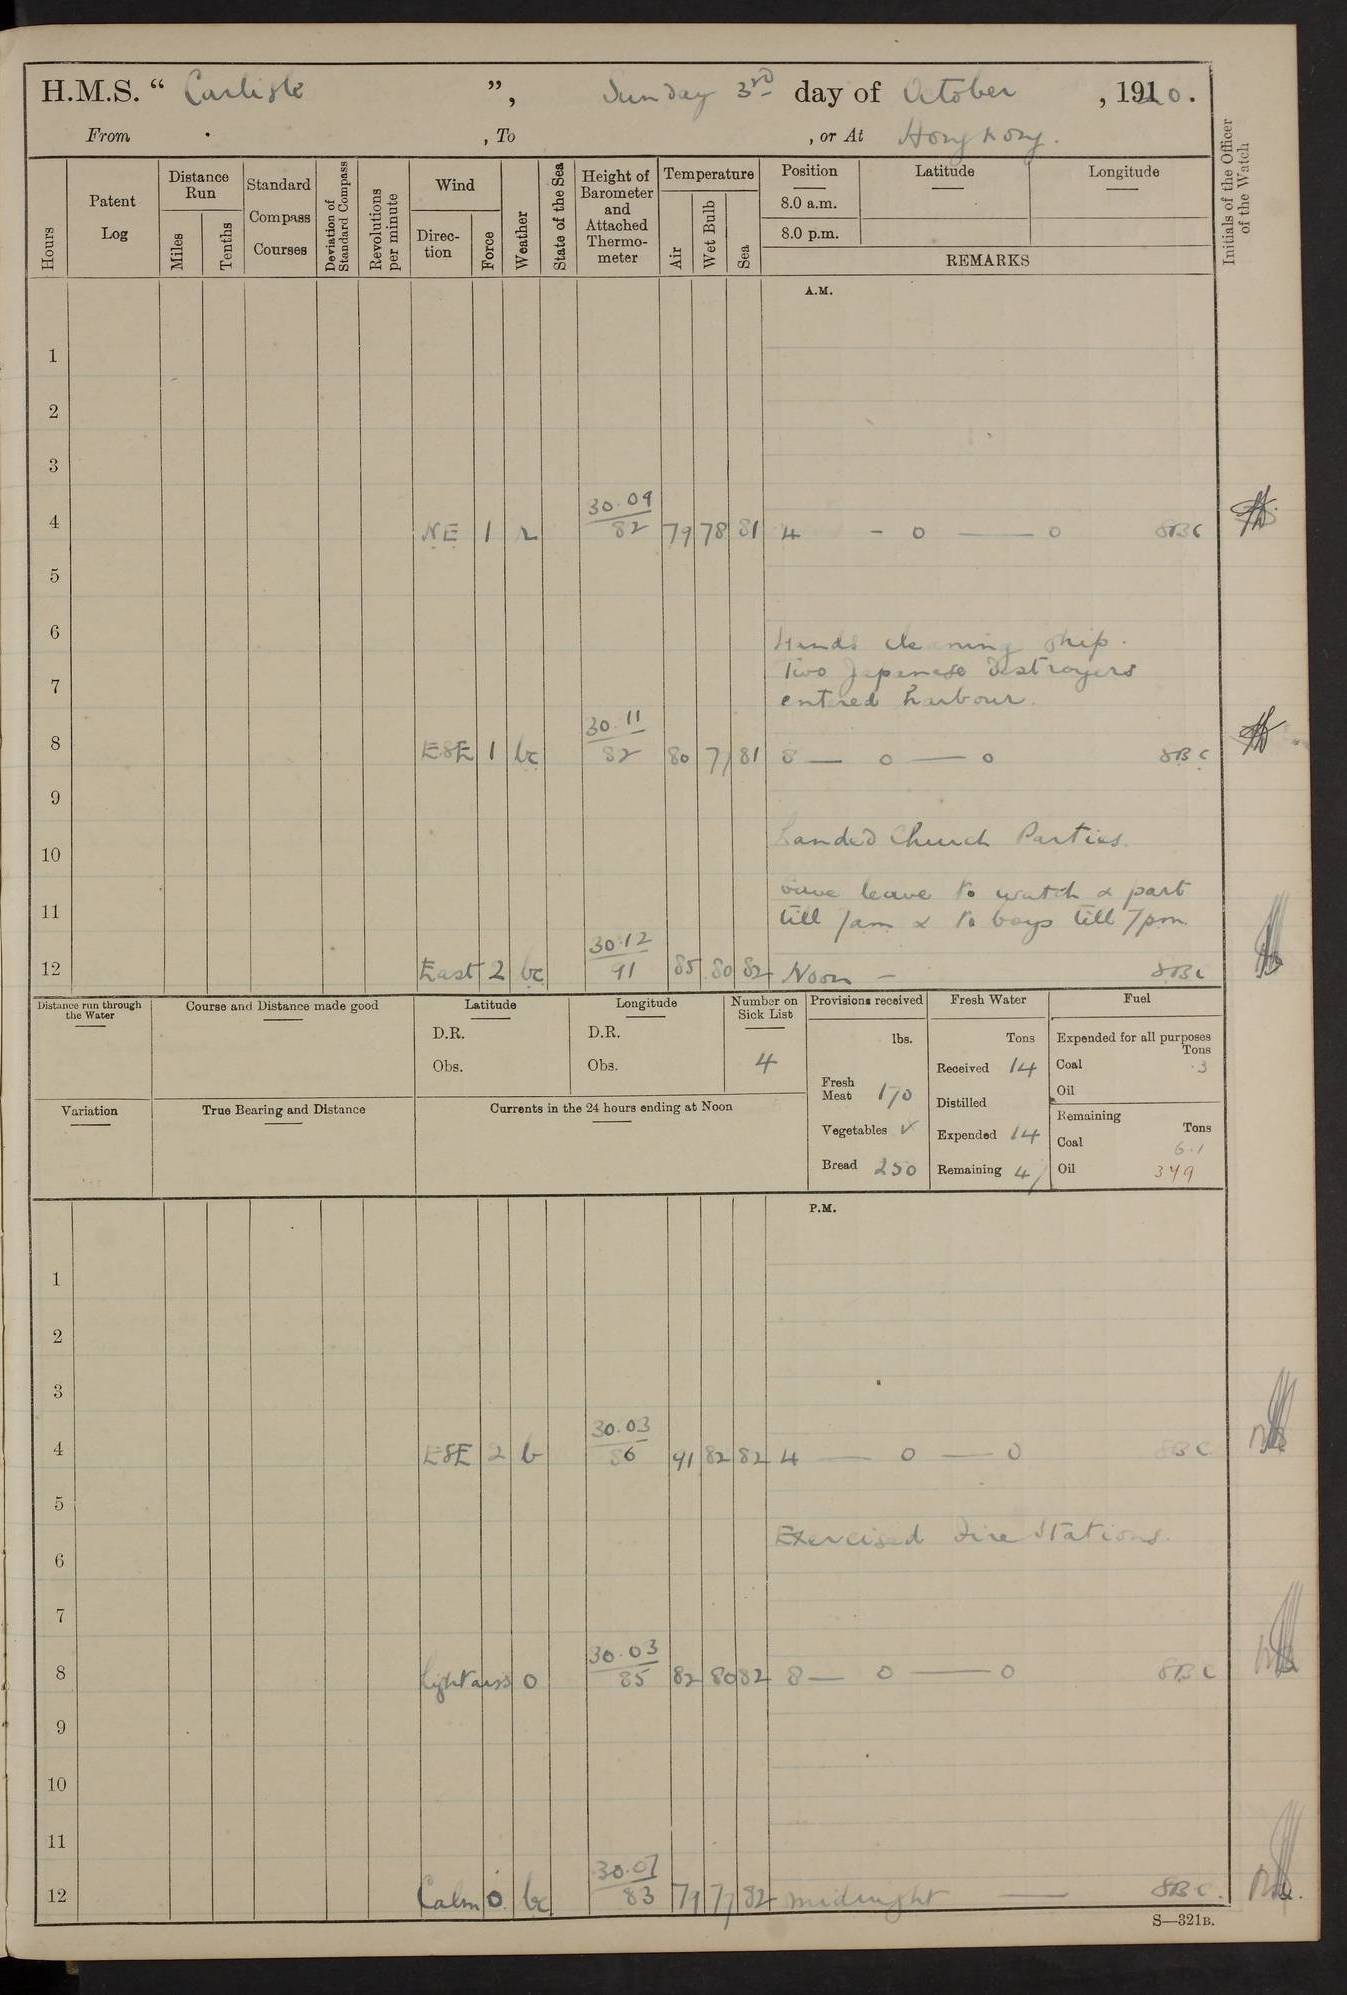 H.M.S. “ Carlisle ”, Sunday 3rd day of October , 1920.
From , To , or At Hong Kong.
Hours
Patent Log
Distance Run
Miles
Tenths
Standard Compass Courses
Deviation of Standard Compass
Revolutions per minute
Wind
Direction
Force
Weather
State of the Sea
Height of Barometer and Attached Thermometer
Temperature
Air
Wet Bulb
Sea
Position
8.0 a.m.
8.0 p.m.
Latitude
Longitude
REMARKS
Initials of the Officer of the Watch
A.M.
1
2
3
4 NE 1 r 30.09 82 79 78 81 4 - o — o SBC
5
6
Hands cleaning ship.
Two Japanese Destroyers
7
entered harbour.
8 ESE 1 bc 30.11 82 80 77 81 8 — o — o SBC
9
Landed Church Parties.
10
Gave leave to watch & part
11
till 7am & to boys till 7pm
12 East 2 bc 30.12 91 85 80 82 Noon — SBC
Distance run through the Water
Course and Distance made good
Latitude
D.R.
Obs.
Longitude
D.R.
Obs.
Number on Sick List
4
Provisions received
lbs.
Fresh Meat 170
Vegetables ✓
Bread 250
Fresh Water
Tons
Received 14
Distilled
Expended 14
Remaining 47
Fuel
Expended for all purposes
Tons
Coal .3
Oil
Remaining
Tons
Coal 6.1
Oil 349
Variation
True Bearing and Distance
Currents in the 24 hours ending at Noon
P.M.
1
2
3
4 ESE 2 b 30.03 86 91 82 82 4 — o — o SBC
5
Exercised Fire Stations.
6
7
8 Light airs o 30.03 85 82 80 82 8 — o — o SBC
9
10
11
12 Calm 0 bc 30.07 83 79 77 82 midnight — SBC.
S—321B.